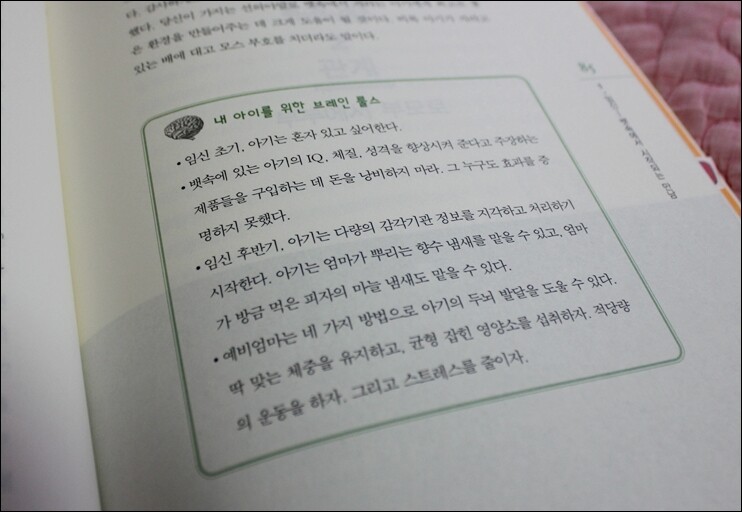 은 환경을 만들어주는 데 크게 도움이 될 것이다.
있는 배에 대고 모스 부호를 치더라도 말이다.
85
내 아이를 위한 브레인 룰스
• 임신 초기, 아기는 혼자 있고 싶어한다.
• 뱃속에 있는 아기의 IQ, 체질, 성격을 향상시켜 준다고 주장하는
제품들을 구입하는 데 돈을 낭비하지 마라. 그 누구도 효과를 증
명하지 못했다.
• 임신 후반기, 아기는 다량의 감각기관 정보를 지각하고 처리하기
시작한다. 아기는 엄마가 뿌리는 향수 냄새를 맡을 수 있고, 엄마
가 방금 먹은 피자의 마늘 냄새도 맡을 수 있다.
• 예비엄마는 네 가지 방법으로 아기의 두뇌 발달을 도울 수 있다.
딱 맞는 체중을 유지하고, 균형 잡힌 영양소를 섭취하자. 적당량
의 운동을 하자. 그리고 스트레스를 줄이자.